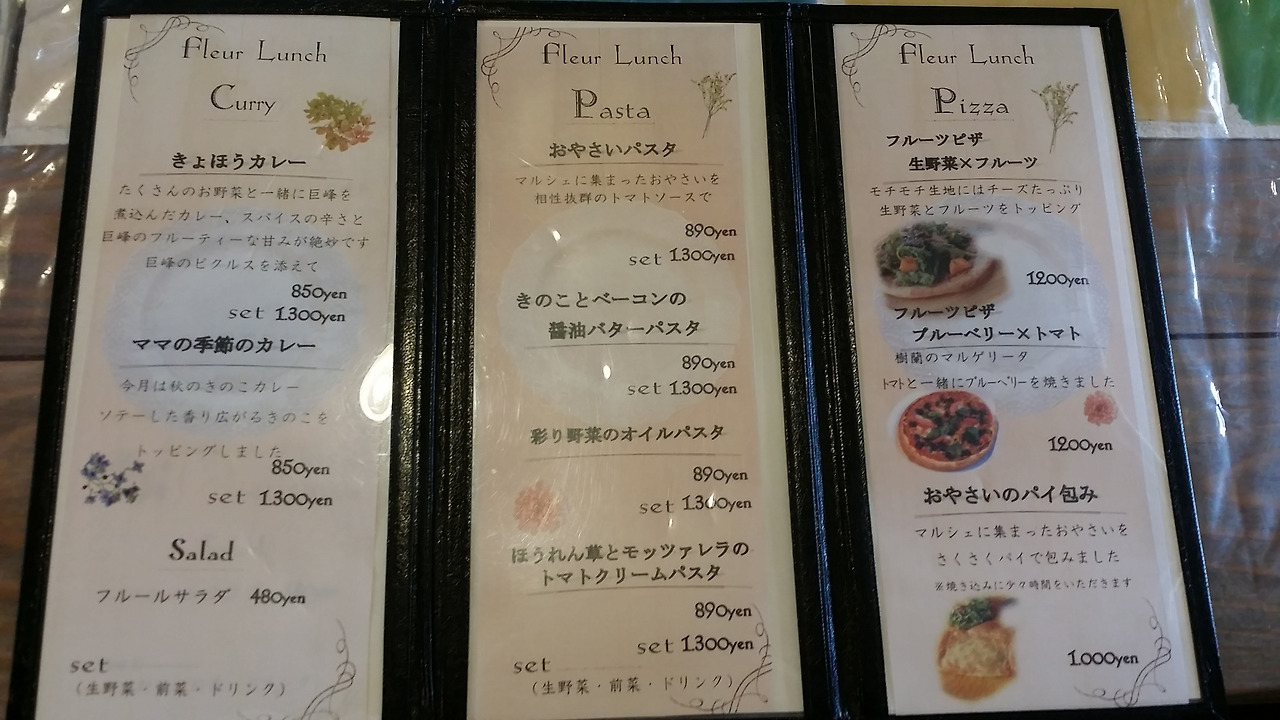 Fleur Lunch
Curry
きょほうカレー
たくさんのお野菜と一緒に巨峰を
煮込んだカレー、スパイスの辛さと
巨峰のフルーティーな甘みが絶妙です
巨峰のピクルスを添えて
850yen
set 1.300yen
ママの季節のカレー
今月は秋のきのこカレー
ソテーした香り広がるきのこを
トッピングしました
850yen
set 1.300yen
Salad
フルールサラダ 480yen
set
(生野菜・前菜・ドリンク)
Fleur Lunch
Pasta
おやさいパスタ
マルシェに集まったおやさいを
相性抜群のトマトソースで
890yen
set 1.300yen
きのことベーコンの
醤油バターパスタ
890yen
set 1.300yen
彩り野菜のオイルパスタ
890yen
set 1.300yen
ほうれん草とモッツァレラの
トマトクリームパスタ
890yen
set 1.300yen
set
(生野菜・前菜・ドリンク)
Fleur Lunch
Pizza
フルーツピザ
生野菜×フルーツ
モチモチ生地にはチーズたっぷり
生野菜とフルーツをトッピング
1200yen
フルーツピザ
ブルーベリー×トマト
樹蘭のマルゲリータ
トマトと一緒にブルーベリーを焼きました
1200yen
おやさいのパイ包み
マルシェに集まったおやさいを
さくさくパイで包みました
※焼き込みに少々時間をいただきます
1.000yen